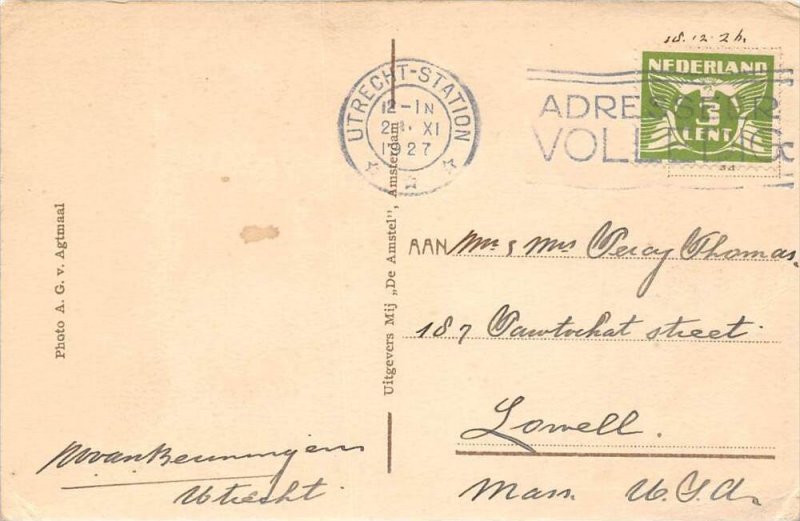 18.12.26.
NEDERLAND
3
CENT
UTRECHT-STATION
12-1N
XI
1927
ADRESSEER
VOLLEDIG
Photo A. G. v. Agtmaal
Uitgevers Mij „De Amstel", Amsterdam
AAN Mr & Mrs Percy Thomas.
187 Pawtuckat street.
Lowell.
Mass. U.S.A.
Utrecht.